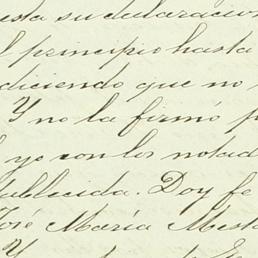 esta su declaracion
l principio hasta
diciendo que no
Y no la firmó p
yo con los notad
ablecida. Doy fe
José María Mest